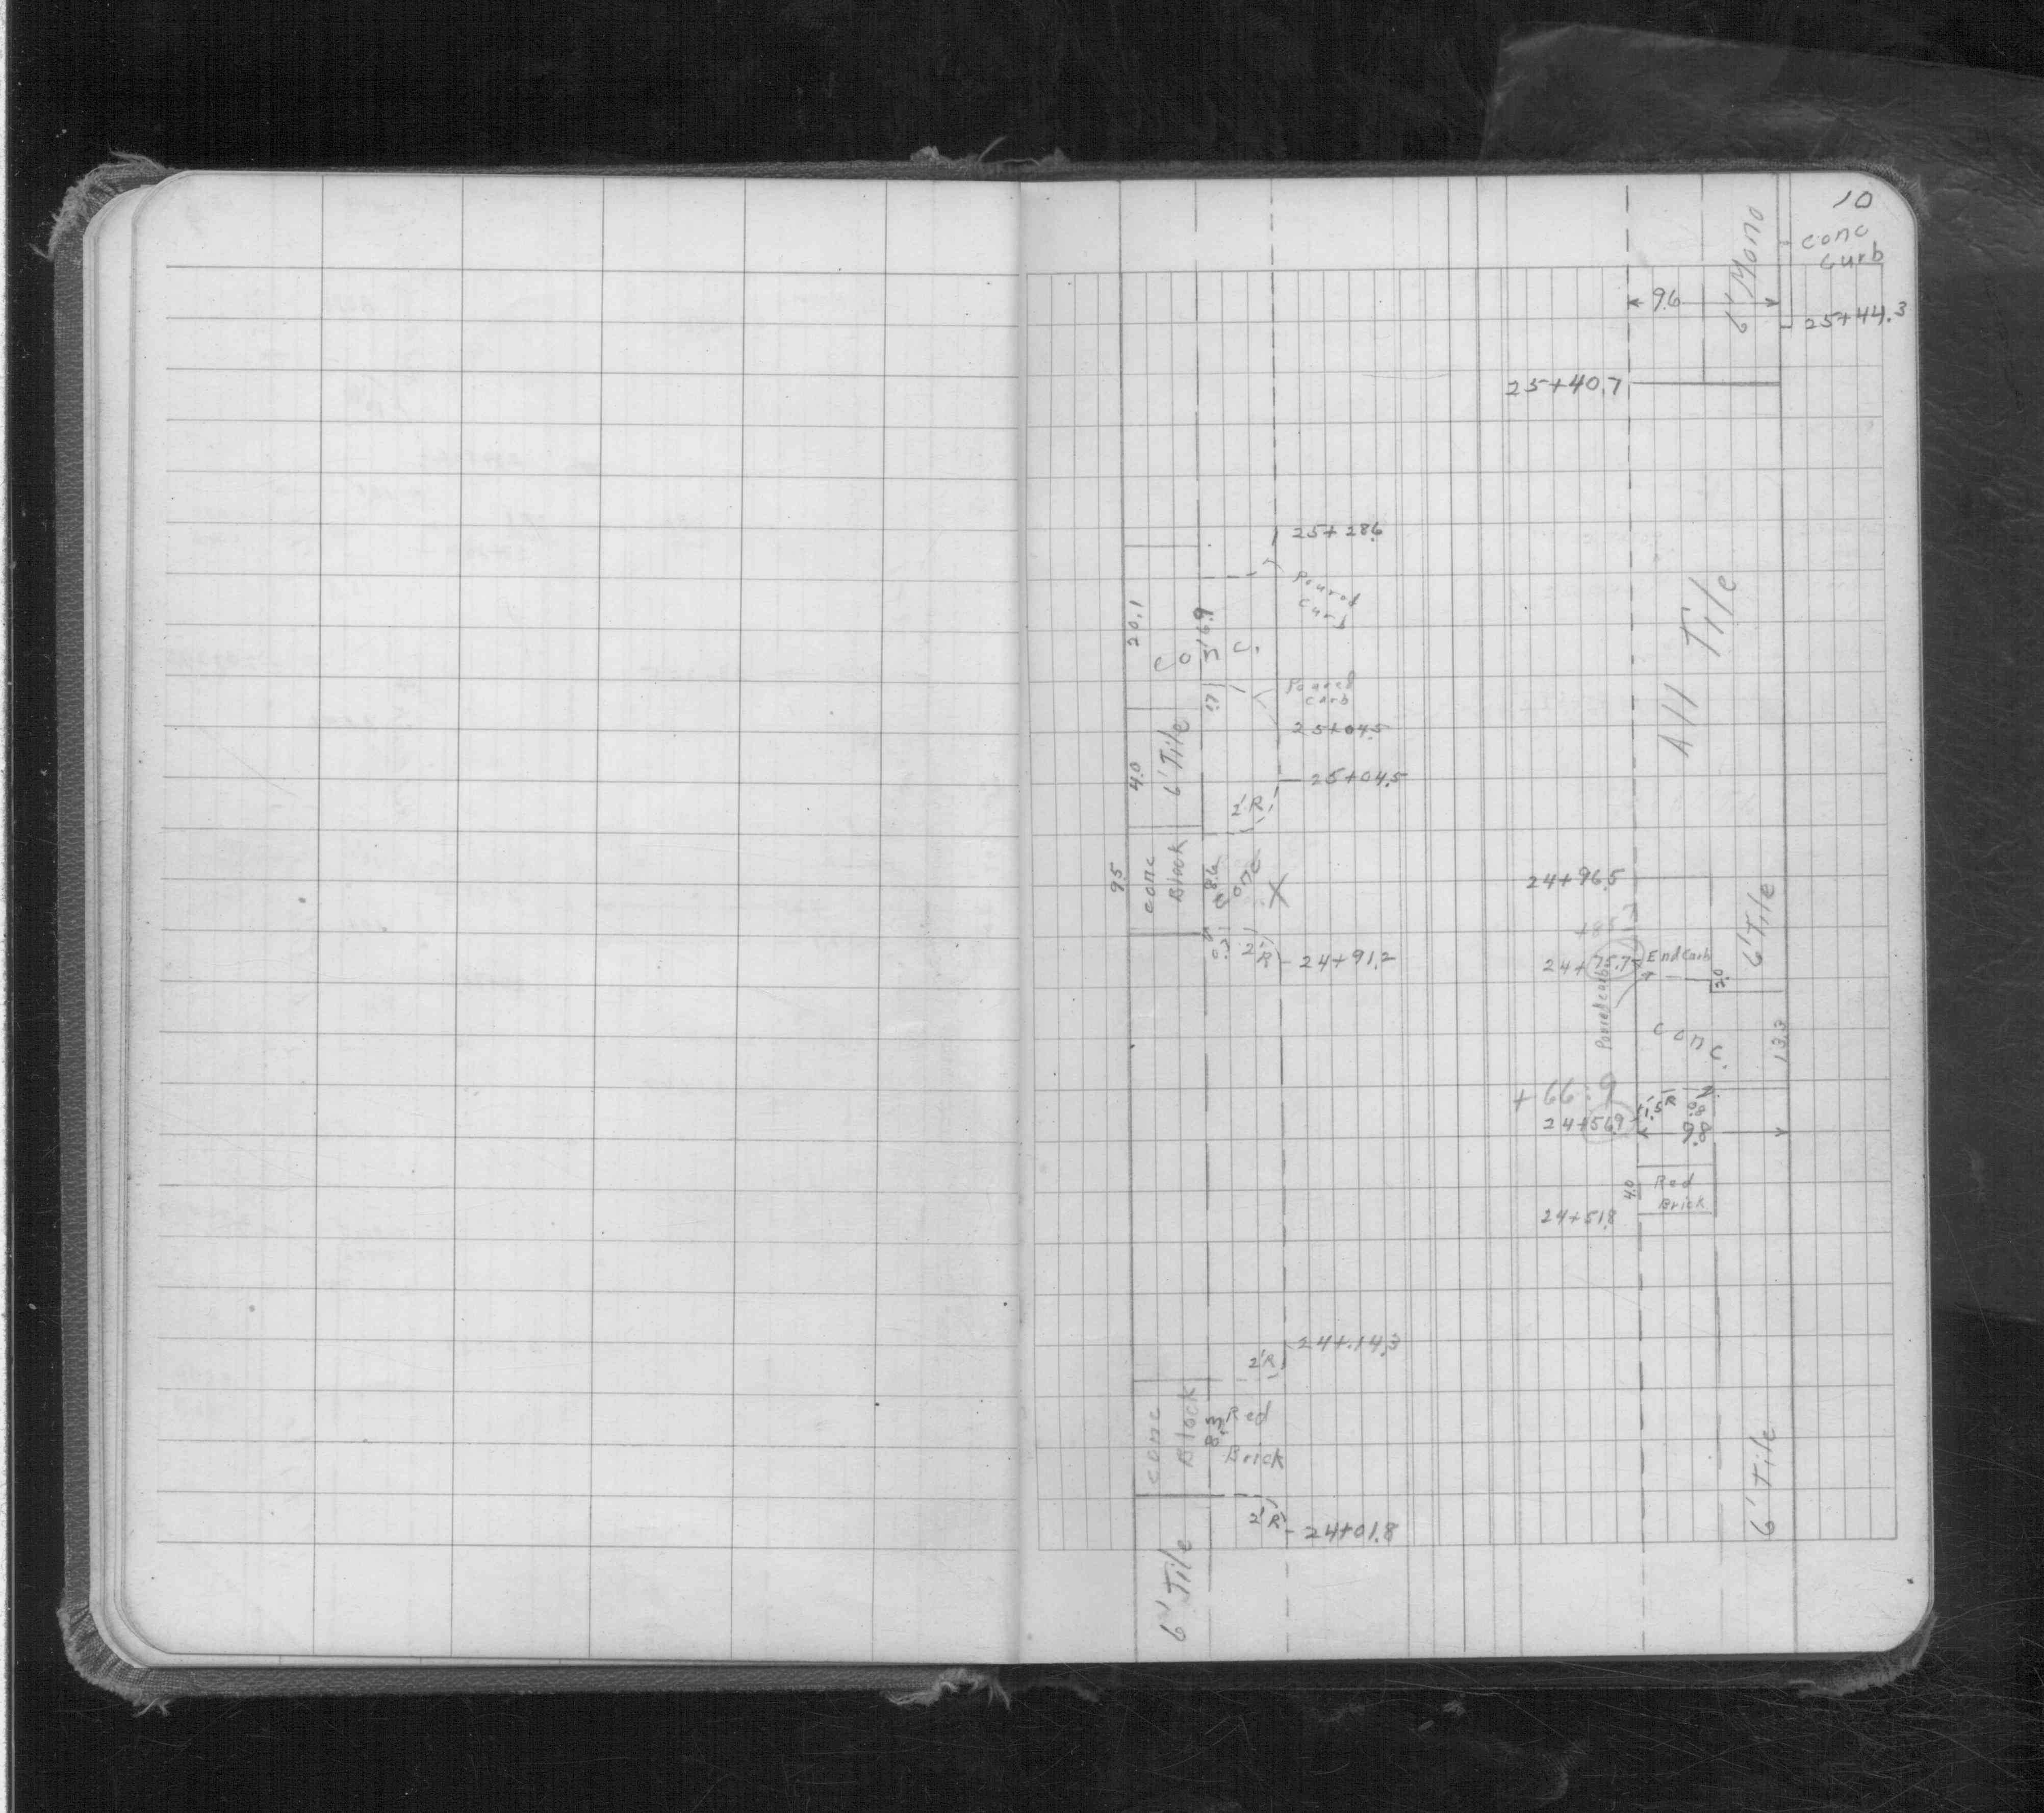 10
conc
curb
6' Mono
9.6
25+44.3
25+40.7
25+28.6
Poured
Curb
20.1
16.9
Conc.
All Tile
Poured
Curb
1.7
25+04.5
6' Tile
4.0
25+04.5
2'R
conc
Block
9.5
8.6
conc
24+96.5
6' Tile
0.7
2'R
24+91.2
24+75.7
End Curb
3.0
Poured curb
Conc.
13.3
+66.9
1.5R
0.8
24+56.9
9.8
4.0
Red
Brick
24+51.8
24+14.3
2'R
conc
Block
8.3
Red
Brick
6' Tile
2'R
24+01.8
6' Tile